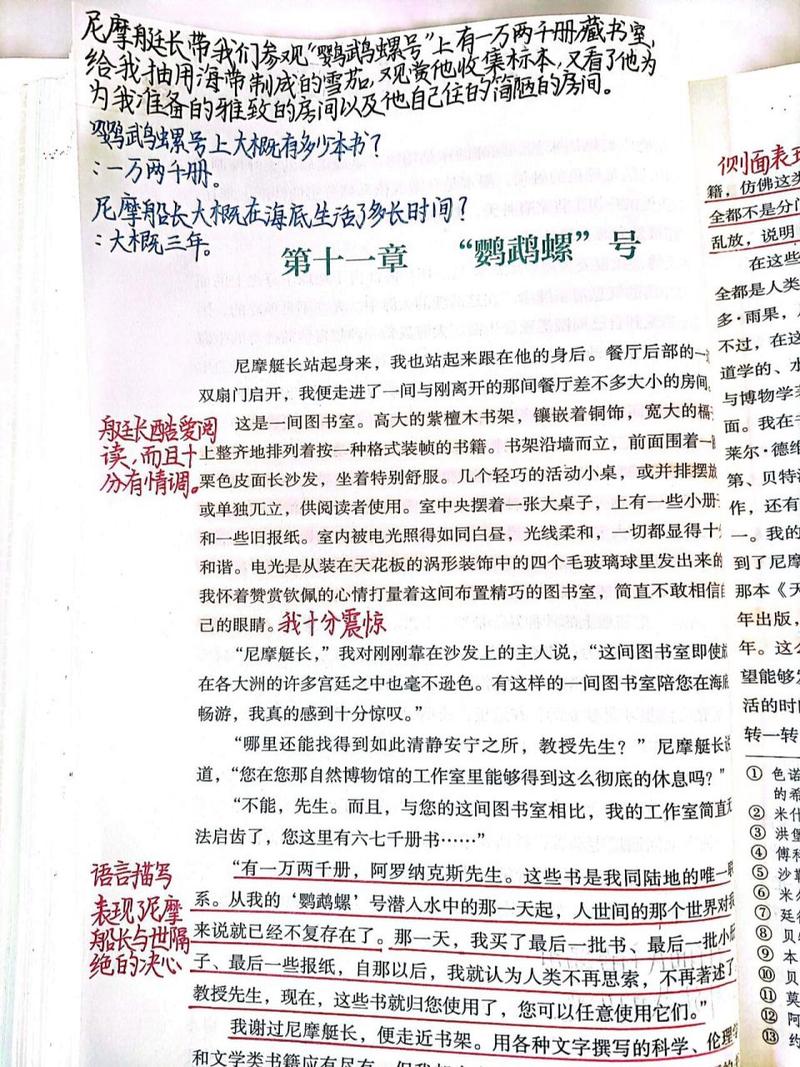 尼摩艇长带我们参观“鹦鹉螺号”上有一万两千册藏书室,
给我抽用海带制成的雪茄,又观赏他收集标本,又看了他为
为我准备的雅致的房间以及他自己住的简陋的房间。
鹦鹉螺号上大概有多少本书?
:一万两千册。
尼摩船长大概在海底生活了多长时间?
:大概三年。
第十一章 “鹦鹉螺”号
尼摩艇长站起身来,我也站起来跟在他的身后。餐厅后部的一
双扇门开启,我便走进了一间与刚离开的那间餐厅差不多大小的房间
这是一间图书室。高大的紫檀木书架,镶嵌着铜饰,宽大的
上整齐地排列着按一种格式装帧的书籍。书架沿墙而立,前面围着一
栗色皮面长沙发,坐着特别舒服。几个轻巧的活动小桌,或并排摆
或单独兀立,供阅读者使用。室中央摆着一张大桌子,上有一些小册
和一些旧报纸。室内被电光照得如同白昼,光线柔和,一切都显得十
和谐。电光是从装在天花板的涡形装饰中的四个毛玻璃球里发出来的
我怀着赞赏钦佩的心情打量着这间布置精巧的图书室,简直不敢相信
己的眼睛。我十分震惊
艇长酷爱阅
读,而且十
分有情调。
“尼摩艇长,”我对刚刚靠在沙发上的主人说,“这间图书室即使
在各大洲的许多宫廷之中也毫不逊色。有这样的一间图书室陪您在海
畅游,我真的感到十分惊叹。”
“哪里还能找得到如此清静安宁之所,教授先生?”尼摩艇长
道,“您在您那自然博物馆的工作室里能够得到这么彻底的休息吗?”
“不能,先生。而且,与您的这间图书室相比,我的工作室简直
法启齿了,您这里有六七千册书……”
“有一万两千册,阿罗纳克斯先生。这些书是我同陆地的唯一
系。从我的‘鹦鹉螺’号潜入水中的那一天起,人世间的那个世界对
来说就已经不复存在了。那一天,我买了最后一批书、最后一批小
子、最后一些报纸,自那以后,我就认为人类不再思索,不再著述了
教授先生,现在,这些书就归您使用了,您可以任意使用它们。”
语言描写
表现了尼摩
船长与世隔
绝的决心
我谢过尼摩艇长,便走近书架。用各种文字撰写的科学、伦理
和文学类书籍应有尽有
侧面表现
籍,仿佛这类
全都不是分
乱放,说明
在这些
全都是人类
多·雨果,
不过,在这
道学的、水
与博物学
面。我在
莱尔·德维
第、贝特
作,还有
一。我的
到了尼摩
那本《天
年出版,
年。这么
望能够
活的时
转一转
① 色诺
的希
② 米什
③ 洪堡
④ 傅科
⑤ 沙勒
⑥ 米尔
⑦ 廷
⑧ 贝
⑨ 本
⑩ 贝
⑪ 莫
⑫ 阿
⑬ 约